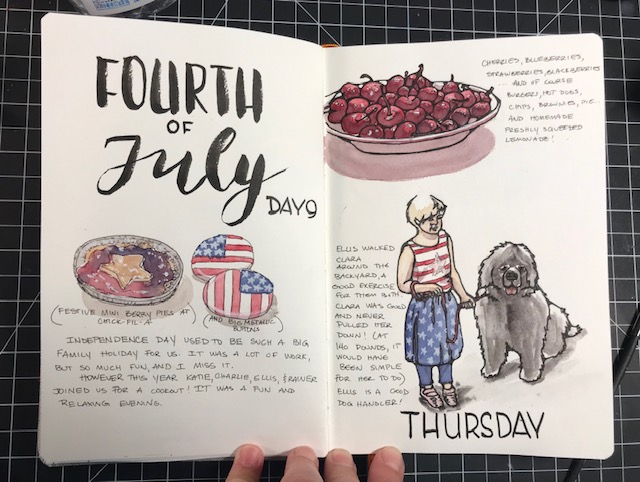 FOURTH
OF
July
DAY 9
(FESTIVE MINI BERRY PIES AT
CHICK-FIL-A)
(AND BIG METALLIC
BUTTONS)
INDEPENDENCE DAY USED TO BE SUCH A BIG
FAMILY HOLIDAY FOR US. IT WAS A LOT OF WORK,
BUT SO MUCH FUN, AND I MISS IT.
HOWEVER THIS YEAR KATIE, CHARLIE, ELLIS, & RAINER
JOINED US FOR A COOKOUT! IT WAS A FUN AND
RELAXING EVENING.
CHERRIES, BLUEBERRIES,
STRAWBERRIES, BLACKBERRIES
... AND OF COURSE
BURGERS, HOT DOGS,
CHIPS, BROWNIES, PIE...
AND HOMEMADE
FRESHLY SQUEEZED
LEMONADE!
ELLIS WALKED
CLARA
AROUND THE
BACKYARD, A
GOOD EXERCISE
FOR THEM BOTH.
CLARA WAS GOOD
AND NEVER
PULLED HER
DOWN! (AT
140 POUNDS, IT
WOULD HAVE
BEEN SIMPLE
FOR HER TO DO)
ELLIS IS A GOOD
DOG HANDLER!
THURSDAY